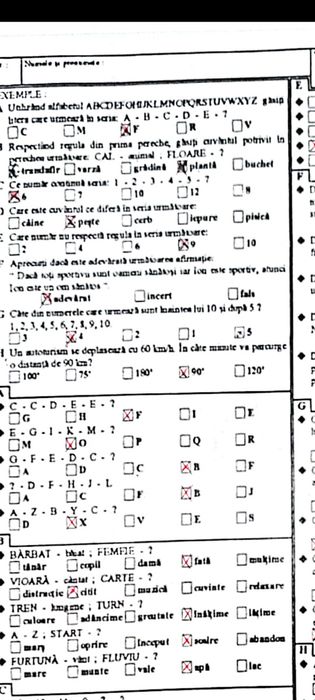 Numele şi prenumele :
EXEMPLE :
Urmărind alfabetul ABCDEFGHIJKLMNOPQRSTUVWXYZ găsiţi
litera care urmează în seria: A - B - C - D - E - ?
C M F R V
Respectând regula din prima pereche, găsiţi cuvântul potrivit în
perechea următoare: CAL - animal ; FLOARE - ?
trandafir varză grădină plantă buchet
Ce număr continuă seria: 1 - 2 - 3 - 4 - 5 - ?
6 7 10 12 8
Care este cuvântul ce diferă în seria următoare:
câine peşte cerb iepure pisică
Care număr nu respectă regula în seria următoare:
2 4 6 9 10
Apreciaţi dacă este adevărată următoarea afirmaţie:
" Dacă toţi sportivii sunt oameni sănătoşi iar Ion este sportiv, atunci
Ion este un om sănătos "
adevărat incert fals
Câte din numerele care urmează sunt înaintea lui 10 şi după 5 ?
1, 2, 3, 4, 5, 6, 7, 8, 9, 10
3 4 2 1 5
Un autoturism se deplasează cu 60 km/h. În câte minute va parcurge
o distanţă de 90 km?
100' 75' 180' 90' 120'
C - C - D - E - E - ?
G H F I E
E - G - I - K - M - ?
M O P Q R
G - F - E - D - C - ?
A D C B F
? - D - F - H - J - L
A C F B J
A - Z - B - Y - C - ?
D X V E S
B
BĂRBAT - băiat ; FEMEIE - ?
tânăr copil damă fată mulţime
VIOARĂ - cântat ; CARTE - ?
distracţie citit muzică cuvinte relaxare
TREN - lungime ; TURN - ?
culoare adâncime greutate înălţime lăţime
A - Z ; START - ?
marş oprire început sosire abandon
FURTUNĂ - vânt ; FLUVIU - ?
mare munte vale apă lac
C
E
G
H